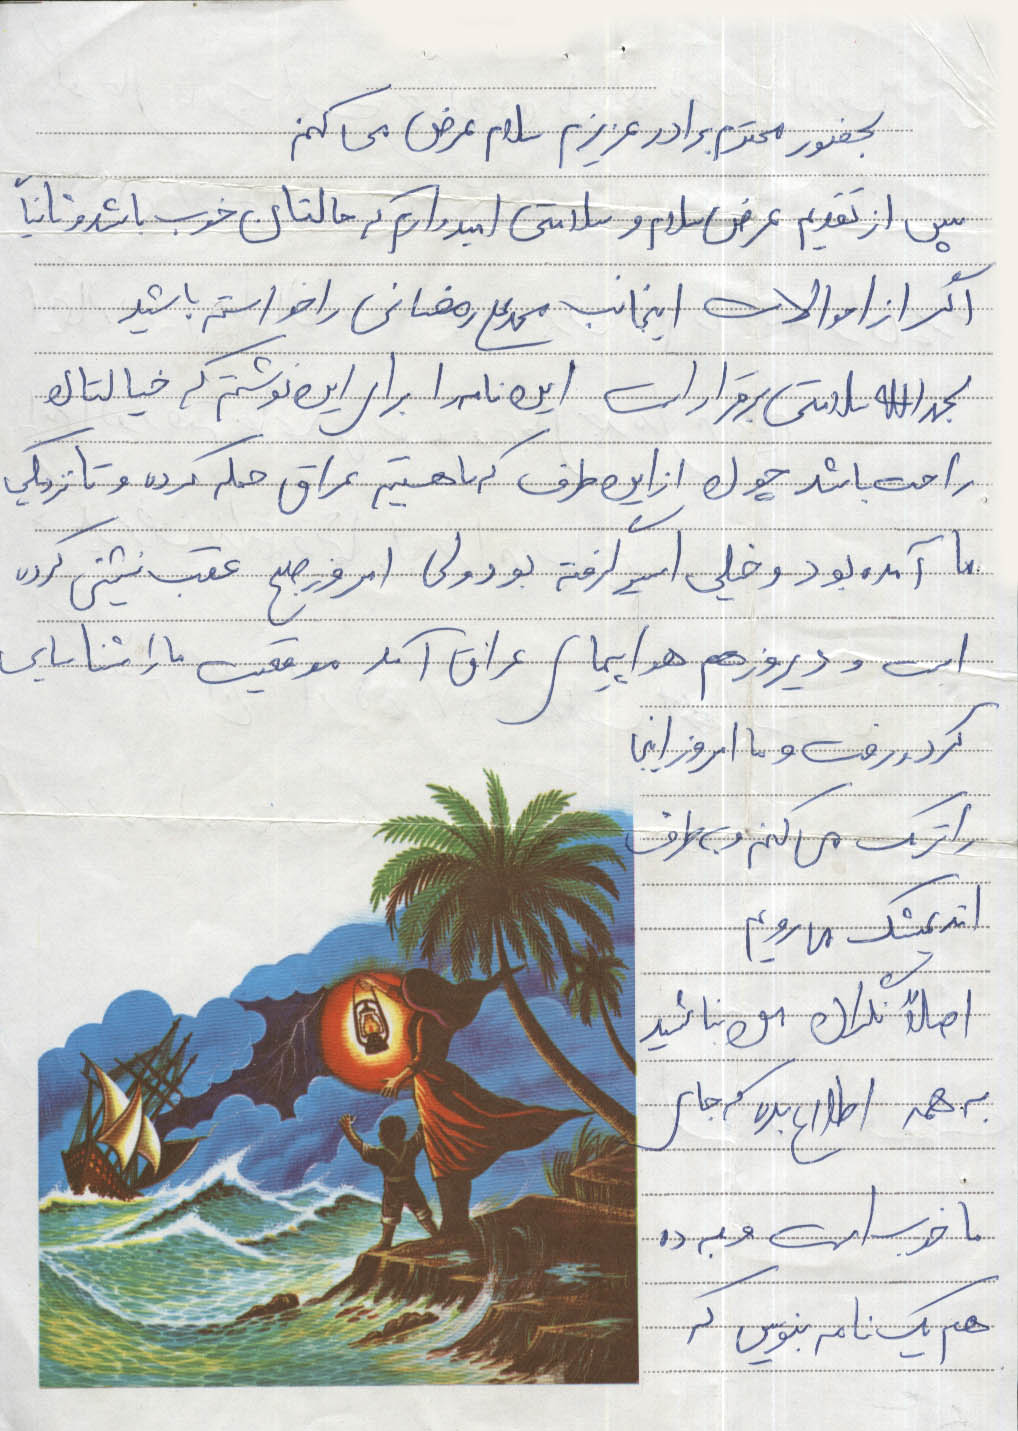 بحضور محترم برادر عزیزم سلام عرض می کنم
پس از تقدیم عرض سلام و سلامتی امیدوارم که حالتان خوب باشد و ثانیاً
اگر از احوالات اینجانب محمدعلی رمضانی را خواسته باشید
بحمدالله سلامتی برقرار است این نامه را برای این نوشتم که خیالتان
راحت باشد چون از این طرف که ما هستیم عراق حمله کرده و تا نزدیکی
ما آمده بود و خیلی اسیر گرفته بود ولی امروز صبح عقب نشینی کرده
است و دیروز هم هواپیمای عراق آمد موقعیت ما را شناسایی
کرد و رفت و ما امروز اینجا
را ترک می کنم و به طرف
اندیمشک می رویم
اصلاً نگران من نباشید
به همه اطلاع بده که جای
ما خوب است و به ده
هم یک نامه بنویس که